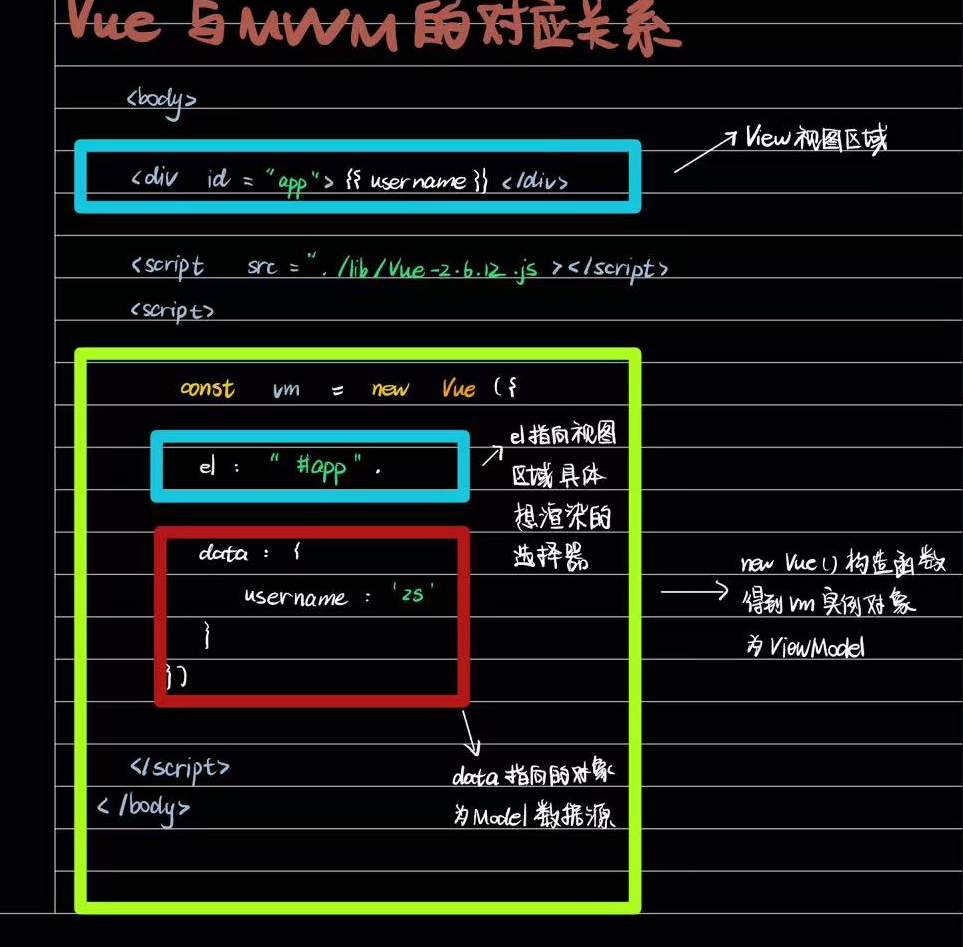 Vue 与MVVM的对应关系
<body>
View视图区域
<div id = "app"> {{ username }} </div>
<script src = "./lib/Vue-2.6.12.js ></script>
<script>
const vm = new Vue ({
el : " #app " .
el指向视图
区域具体
想渲染的
选择器
data : {
username : 'zs'
}
})
new Vue () 构造函数
得到 vm 实例对象
为 ViewModel
</script>
</body>
data 指向的对象
为Model 数据源